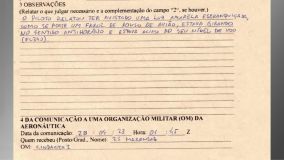 3 OBSERVAÇÕES
(Relatar o que julgar necessário e a complementação do campo "2", se houver.)
O PILOTO RELATOU TER AVISTADO UMA LUZ AMARELA ESBRANQUIÇADA,
COMO SE FOSSE UM FAROL DE POUSO DE AVIÃO, ESTAVA GIRANDO
NO SENTIDO ANTIHORÁRIO E ESTAVA ACIMA DO SEU NÍVEL DE VOO
4 DA COMUNICAÇÃO A UMA ORGANIZAÇÃO MILITAR (OM) DA
AERONÁUTICA
Data da comunicação: Hora 01:45 Z
Quem recebeu (Posto/Grad., Nome):
OM: CINDACTA